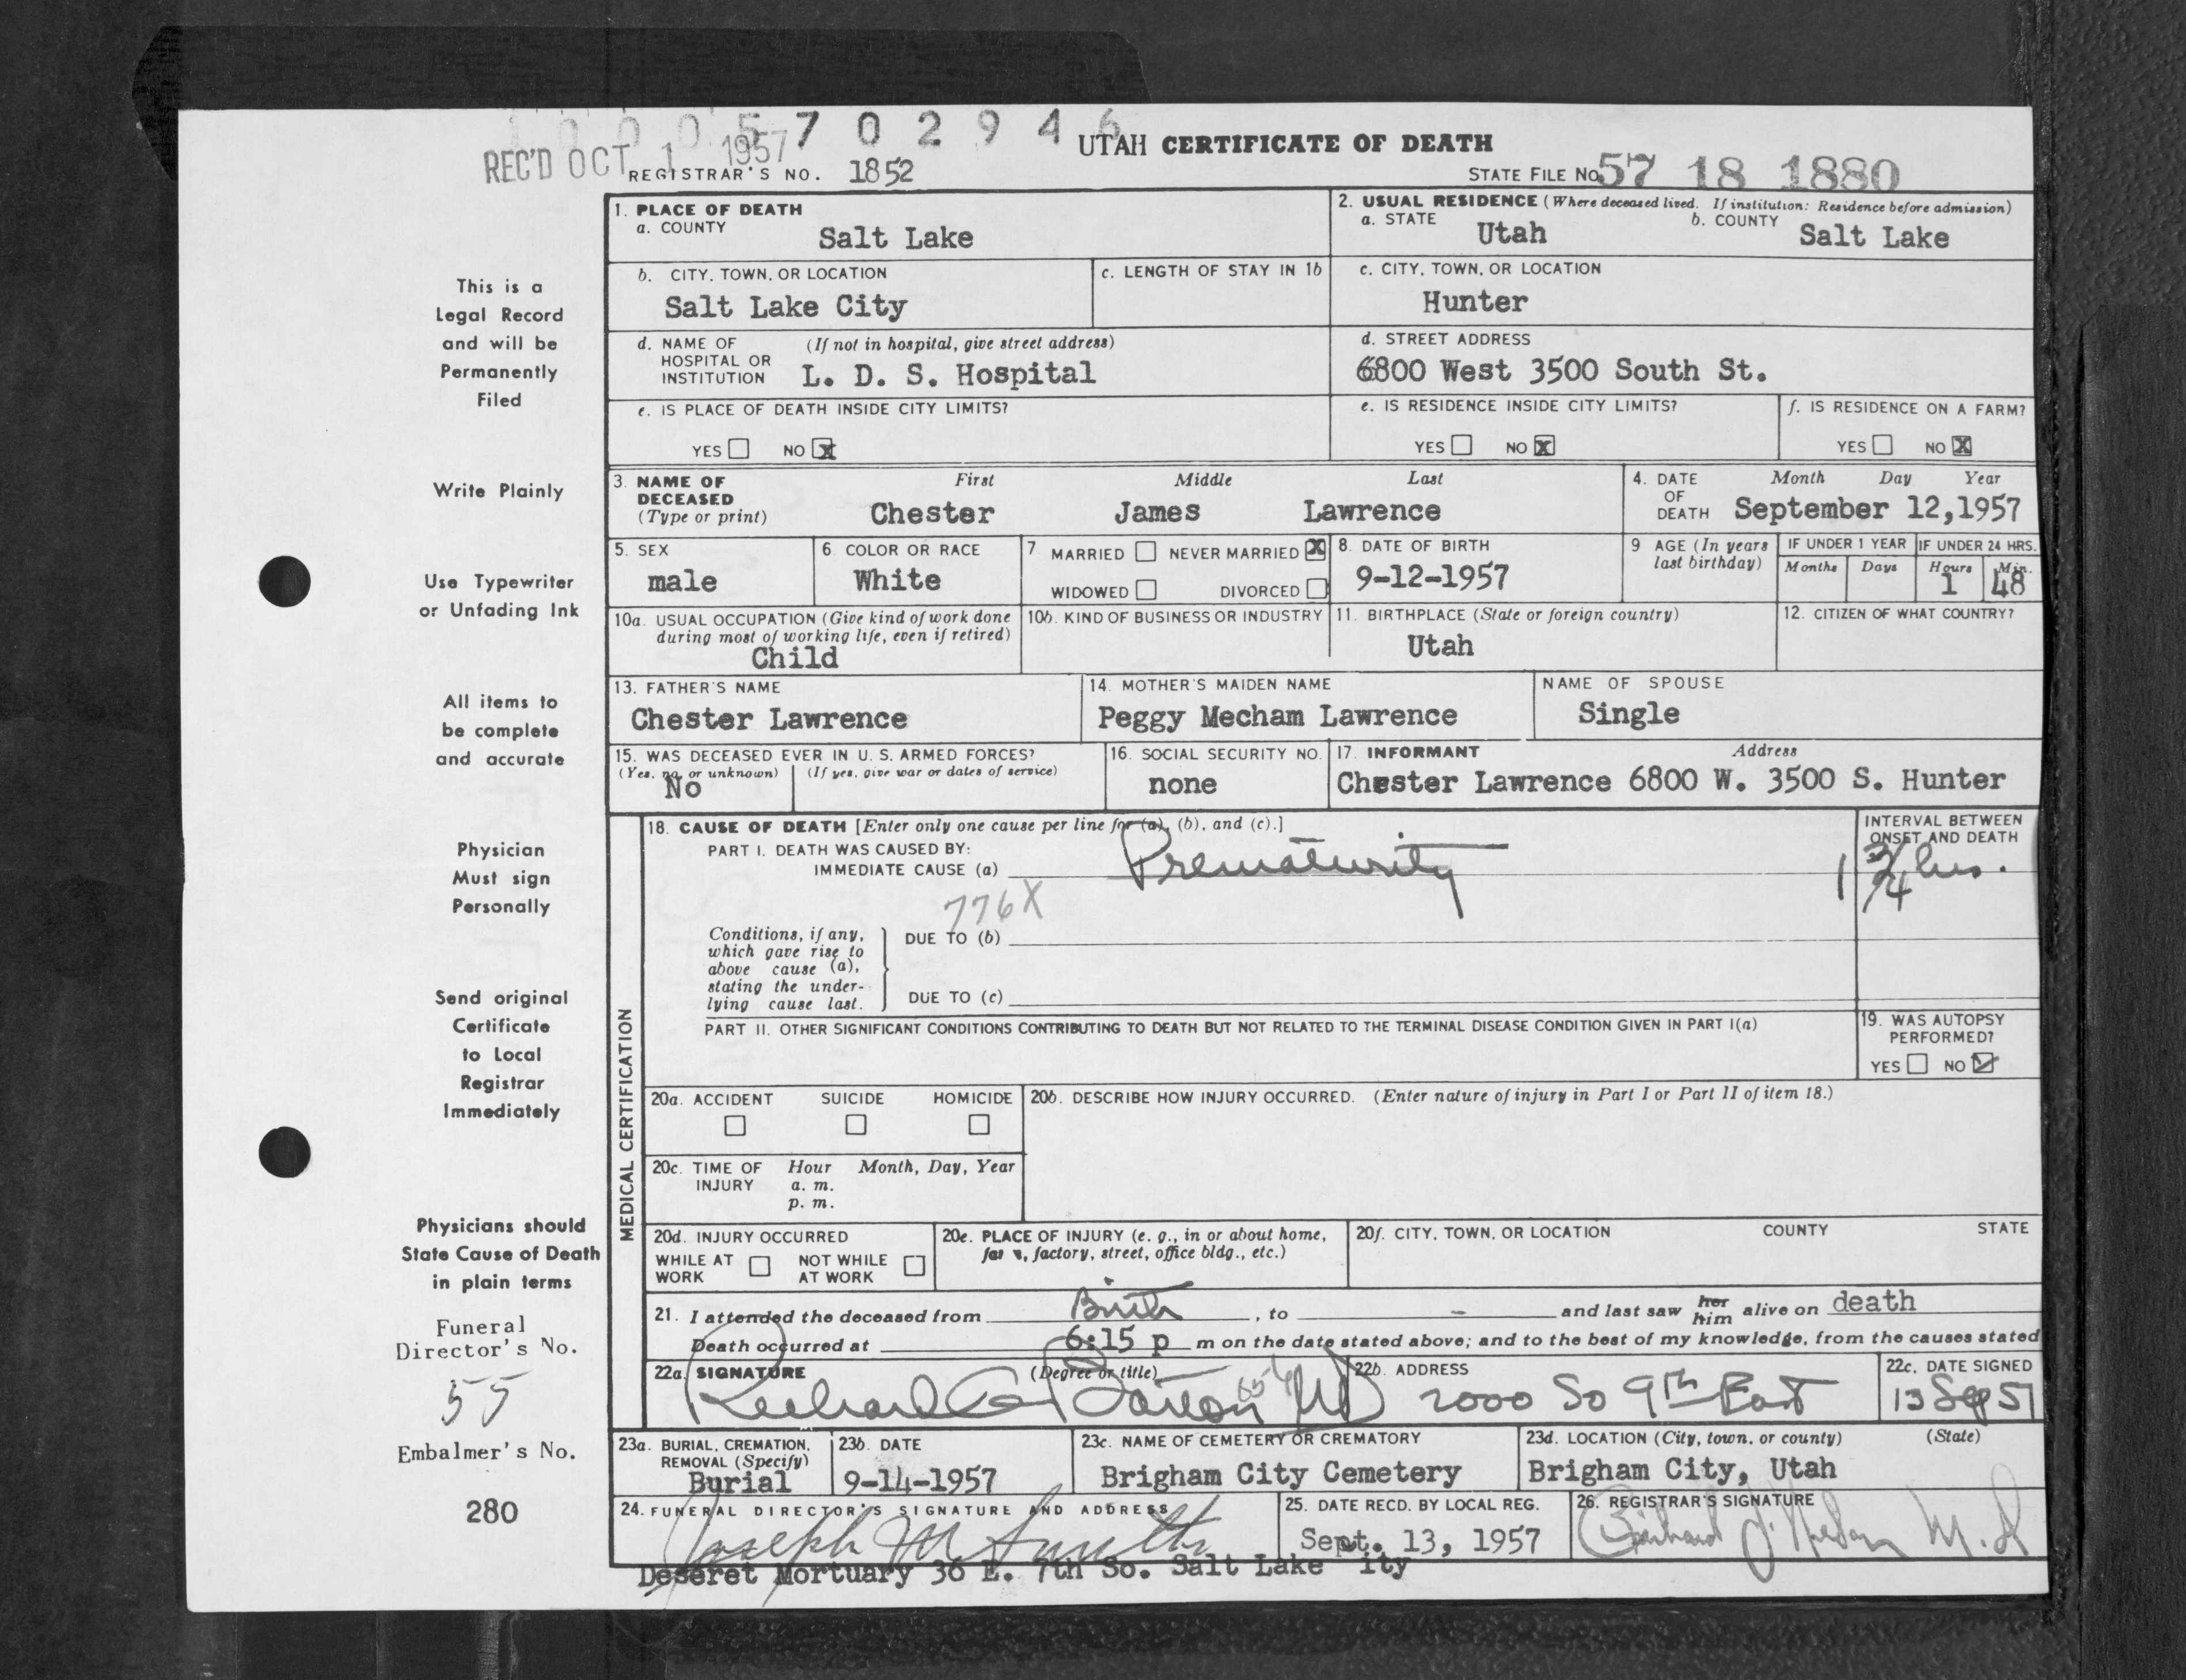 1 0 0 0 5 7 0 2 9 4 6
UTAH CERTIFICATE OF DEATH
REC'D OCT 1 1957
REGISTRAR'S NO. 1852
STATE FILE NO. 57 18 1880
1. PLACE OF DEATH
a. COUNTY Salt Lake
2. USUAL RESIDENCE (Where deceased lived. If institution: Residence before admission)
a. STATE Utah b. COUNTY Salt Lake
b. CITY, TOWN, OR LOCATION Salt Lake City
c. LENGTH OF STAY IN 1b
c. CITY, TOWN, OR LOCATION Hunter
d. NAME OF HOSPITAL OR INSTITUTION (If not in hospital, give street address) L. D. S. Hospital
d. STREET ADDRESS 6800 West 3500 South St.
e. IS PLACE OF DEATH INSIDE CITY LIMITS?
YES NO X
e. IS RESIDENCE INSIDE CITY LIMITS?
YES NO X
f. IS RESIDENCE ON A FARM?
YES NO X
3. NAME OF DECEASED (Type or print)
First Middle Last
Chester James Lawrence
4. DATE OF DEATH Month Day Year
September 12,1957
5. SEX male
6. COLOR OR RACE White
7 MARRIED NEVER MARRIED X
WIDOWED DIVORCED
8. DATE OF BIRTH 9-12-1957
9 AGE (In years last birthday)
IF UNDER 1 YEAR Months Days
IF UNDER 24 HRS. Hours 1 Min. 48
10a. USUAL OCCUPATION (Give kind of work done during most of working life, even if retired) Child
10b. KIND OF BUSINESS OR INDUSTRY
11. BIRTHPLACE (State or foreign country) Utah
12. CITIZEN OF WHAT COUNTRY?
13. FATHER'S NAME Chester Lawrence
14. MOTHER'S MAIDEN NAME Peggy Mecham Lawrence
NAME OF SPOUSE Single
15. WAS DECEASED EVER IN U. S. ARMED FORCES?
(Yes, no, or unknown) No
(If yes, give war or dates of service)
16. SOCIAL SECURITY NO. none
17. INFORMANT Address
Chester Lawrence 6800 W. 3500 S. Hunter
MEDICAL CERTIFICATION
18. CAUSE OF DEATH [Enter only one cause per line for (a), (b), and (c).]
PART I. DEATH WAS CAUSED BY:
IMMEDIATE CAUSE (a) Prematurity
776X
INTERVAL BETWEEN ONSET AND DEATH
1 3/4 hrs.
Conditions, if any, which gave rise to above cause (a), stating the under-lying cause last.
DUE TO (b)
DUE TO (c)
PART II. OTHER SIGNIFICANT CONDITIONS CONTRIBUTING TO DEATH BUT NOT RELATED TO THE TERMINAL DISEASE CONDITION GIVEN IN PART I(a)
19. WAS AUTOPSY PERFORMED?
YES NO
20a. ACCIDENT SUICIDE HOMICIDE
20b. DESCRIBE HOW INJURY OCCURRED. (Enter nature of injury in Part I or Part II of item 18.)
20c. TIME OF INJURY Hour Month, Day, Year
a. m.
p. m.
20d. INJURY OCCURRED
WHILE AT WORK NOT WHILE AT WORK
20e. PLACE OF INJURY (e. g., in or about home, factory, street, office bldg., etc.)
20f. CITY, TOWN, OR LOCATION COUNTY STATE
21. I attended the deceased from Birth, to - and last saw her him alive on death
Death occurred at 6:15 p m on the date stated above; and to the best of my knowledge, from the causes stated
22a. SIGNATURE (Degree or title)
Richard MD
22b. ADDRESS 2000 So 9th East
22c. DATE SIGNED 13 Sep 57
23a. BURIAL, CREMATION, REMOVAL (Specify) Burial
23b. DATE 9-14-1957
23c. NAME OF CEMETERY OR CREMATORY Brigham City Cemetery
23d. LOCATION (City, town, or county) (State)
Brigham City, Utah
24. FUNERAL DIRECTOR'S SIGNATURE AND ADDRESS
Joseph M Smith
Deseret Mortuary 36 E. 7th So. Salt Lake ity
25. DATE RECD. BY LOCAL REG. Sept. 13, 1957
26. REGISTRAR'S SIGNATURE
M.D
This is a
Legal Record
and will be
Permanently
Filed
Write Plainly
Use Typewriter
or Unfading Ink
All items to
be complete
and accurate
Physician
Must sign
Personally
Send original
Certificate
to Local
Registrar
Immediately
Physicians should
State Cause of Death
in plain terms
Funeral
Director's No.
55
Embalmer's No.
280